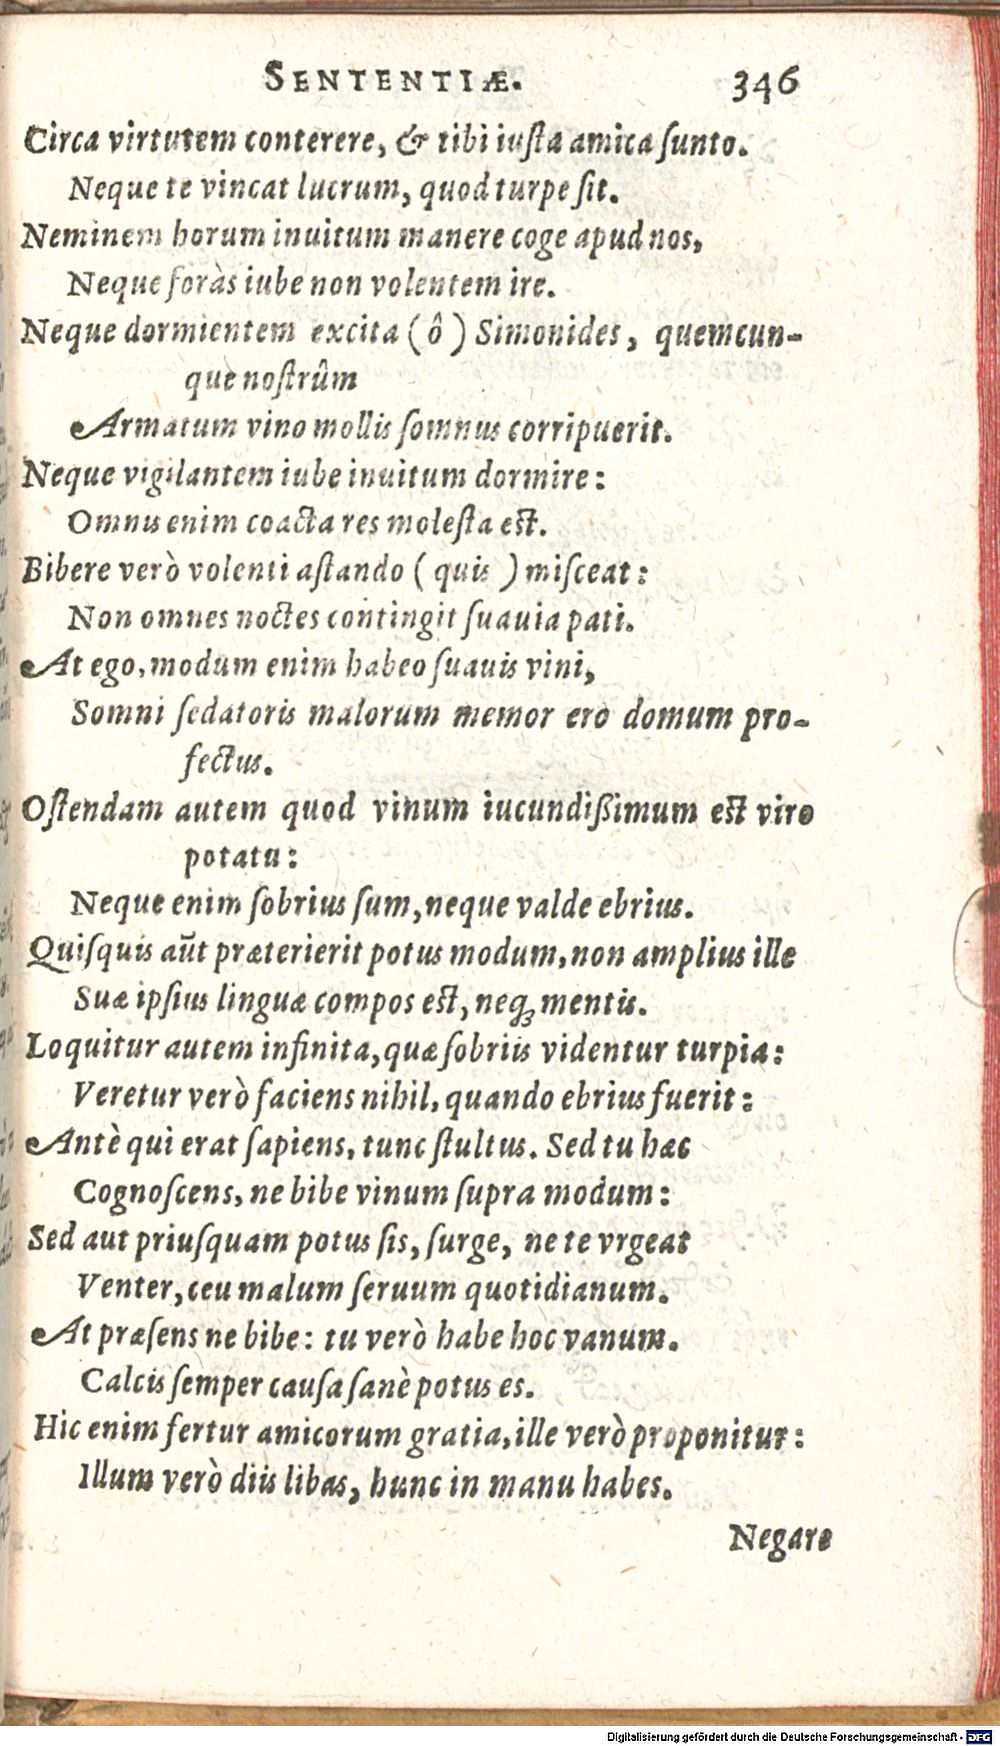 SENTENTIÆ. 346
Circa virtutem conterere, & tibi iuſta amica ſunto.
Neque te vincat lucrum, quod turpe ſit.
Neminem horum inuitum manere coge apud nos,
Neque foràs iube non volentem ire.
Neque dormientem excita (ô) Simonides, quemcun-
que noſtrûm
Armatum vino mollis ſomnus corripuerit.
Neque vigilantem iube inuitum dormire:
Omnis enim coacta res moleſta eſt.
Bibere verò volenti aſtando (quis) miſceat:
Non omnes noctes contingit ſuauia pati.
At ego, modum enim habeo ſuauis vini,
Somni ſedatoris malorum memor ero domum pro-
fectus.
Oſtendam autem quod vinum iucundißimum eſt viro
potatu:
Neque enim ſobrius ſum, neque valde ebrius.
Quiſquis aūt præterierit potus modum, non amplius ille
Suæ ipſius linguæ compos eſt, neqꝫ mentis.
Loquitur autem infinita, quæ ſobriis videntur turpia:
Veretur verò faciens nihil, quando ebrius fuerit:
Antè qui erat ſapiens, tunc ſtultus. Sed tu hæc
Cognoſcens, ne bibe vinum ſupra modum:
Sed aut priuſquam potus ſis, ſurge, ne te vrgeat
Venter, ceu malum ſeruum quotidianum.
At præſens ne bibe: tu verò habe hoc vanum.
Calcis ſemper cauſa ſanè potus es.
Hic enim fertur amicorum gratia, ille verò proponitur:
Illum verò diis libas, hunc in manu habes.
Negare
Digitalisierung gefördert durch die Deutsche Forschungsgemeinschaft - DFG